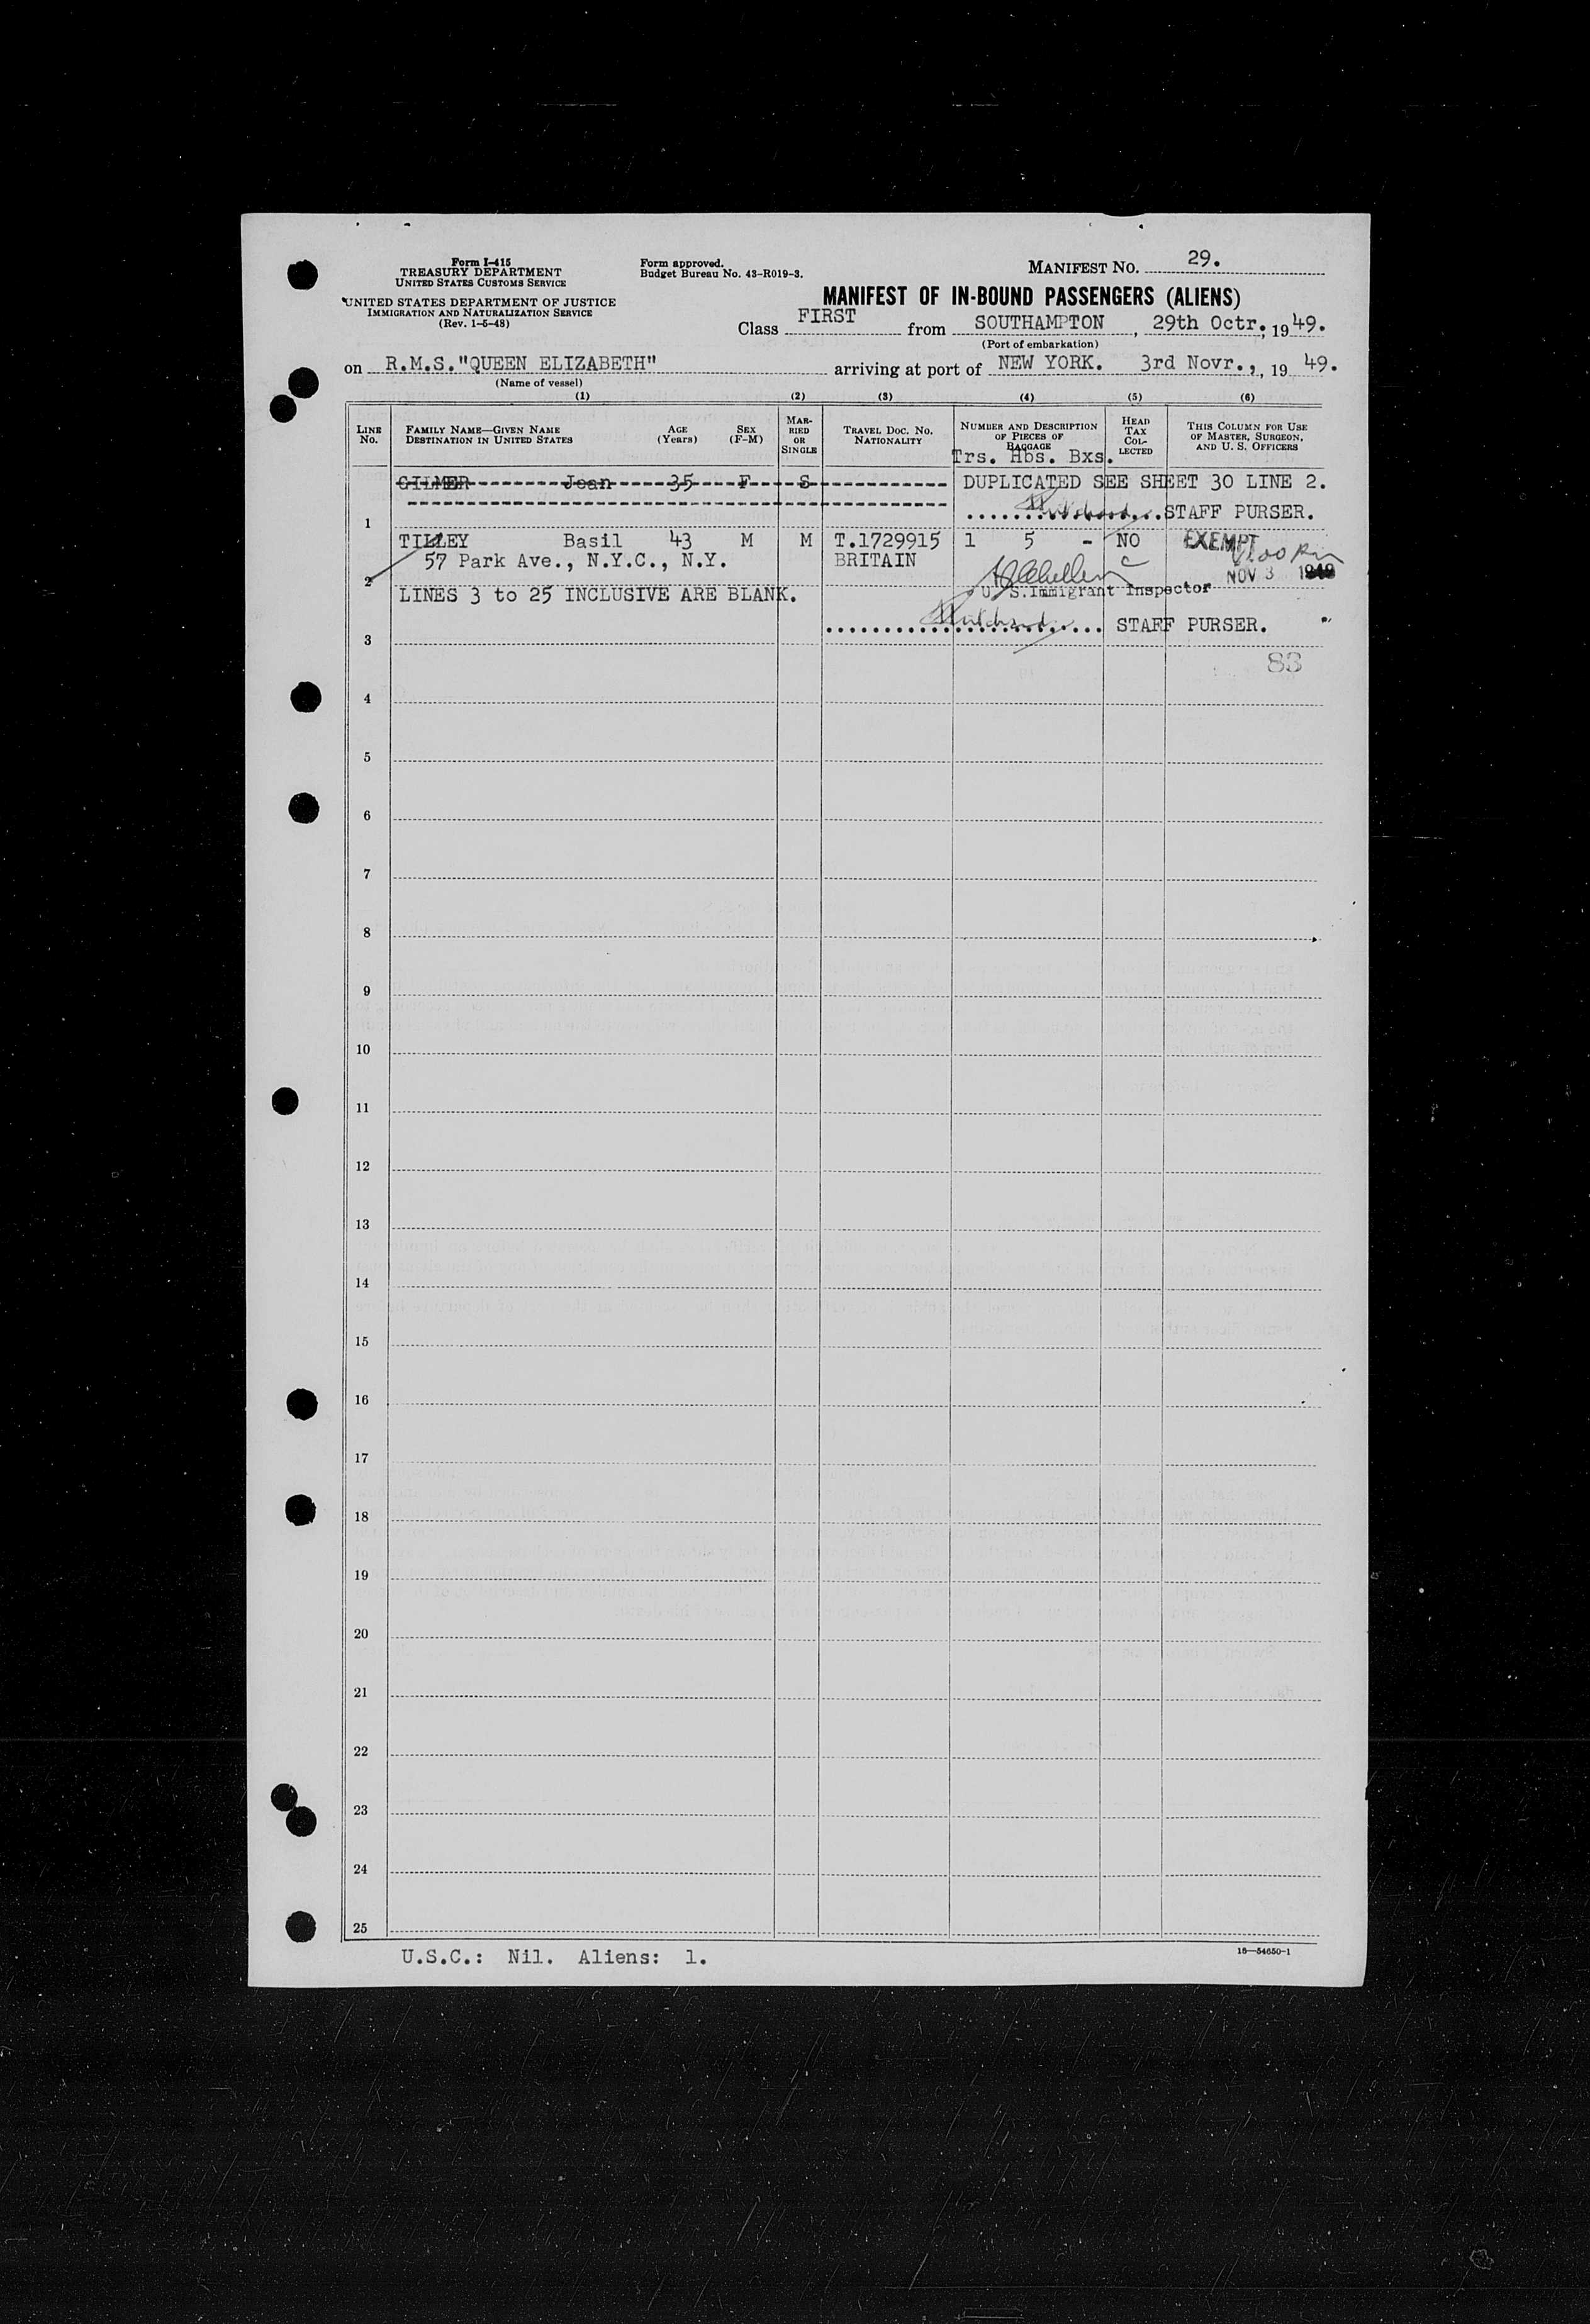 Form I-415
TREASURY DEPARTMENT
UNITED STATES CUSTOMS SERVICE
UNITED STATES DEPARTMENT OF JUSTICE
IMMIGRATION AND NATURALIZATION SERVICE
(Rev. 1-5-48)
Form approved.
Budget Bureau No. 43-R019-3.
MANIFEST NO. 29.
MANIFEST OF IN-BOUND PASSENGERS (ALIENS)
Class FIRST from SOUTHAMPTON, 29th Octr., 1949.
(Port of embarkation)
on R.M.S."QUEEN ELIZABETH" arriving at port of NEW YORK. 3rd Novr., , 19 49.
(Name of vessel)
(1) (2) (3) (4) (5) (6)
LINE No.
FAMILY NAME—GIVEN NAME
DESTINATION IN UNITED STATES
AGE (Years)
SEX (F-M)
MARRIED OR SINGLE
TRAVEL DOC. NO.
NATIONALITY
NUMBER AND DESCRIPTION
OF PIECES OF
BAGGAGE
Trs. Hbs. Bxs.
HEAD TAX COLLECTED
THIS COLUMN FOR USE
OF MASTER, SURGEON,
AND U. S. OFFICERS
GILMER Jean 35 F S DUPLICATED SEE SHEET 30 LINE 2.
1 STAFF PURSER.
TILLEY Basil 43 M M T.1729915 1 5 - NO EXEMPT
57 Park Ave., N.Y.C., N.Y. BRITAIN
2 NOV 3 1949
LINES 3 to 25 INCLUSIVE ARE BLANK. U. S. Immigrant Inspector
3 STAFF PURSER.
83
4
5
6
7
8
9
10
11
12
13
14
15
16
17
18
19
20
21
22
23
24
25
U.S.C.: Nil. Aliens: 1.
16—54650-1